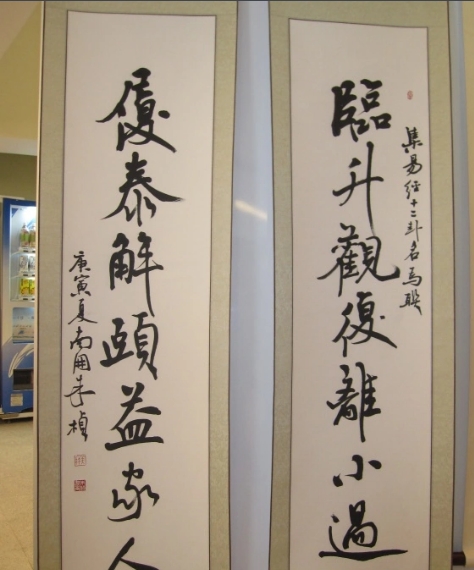 臨升觀復離小過
集易經十二卦名為聯
履泰解頤益家人
庚寅夏